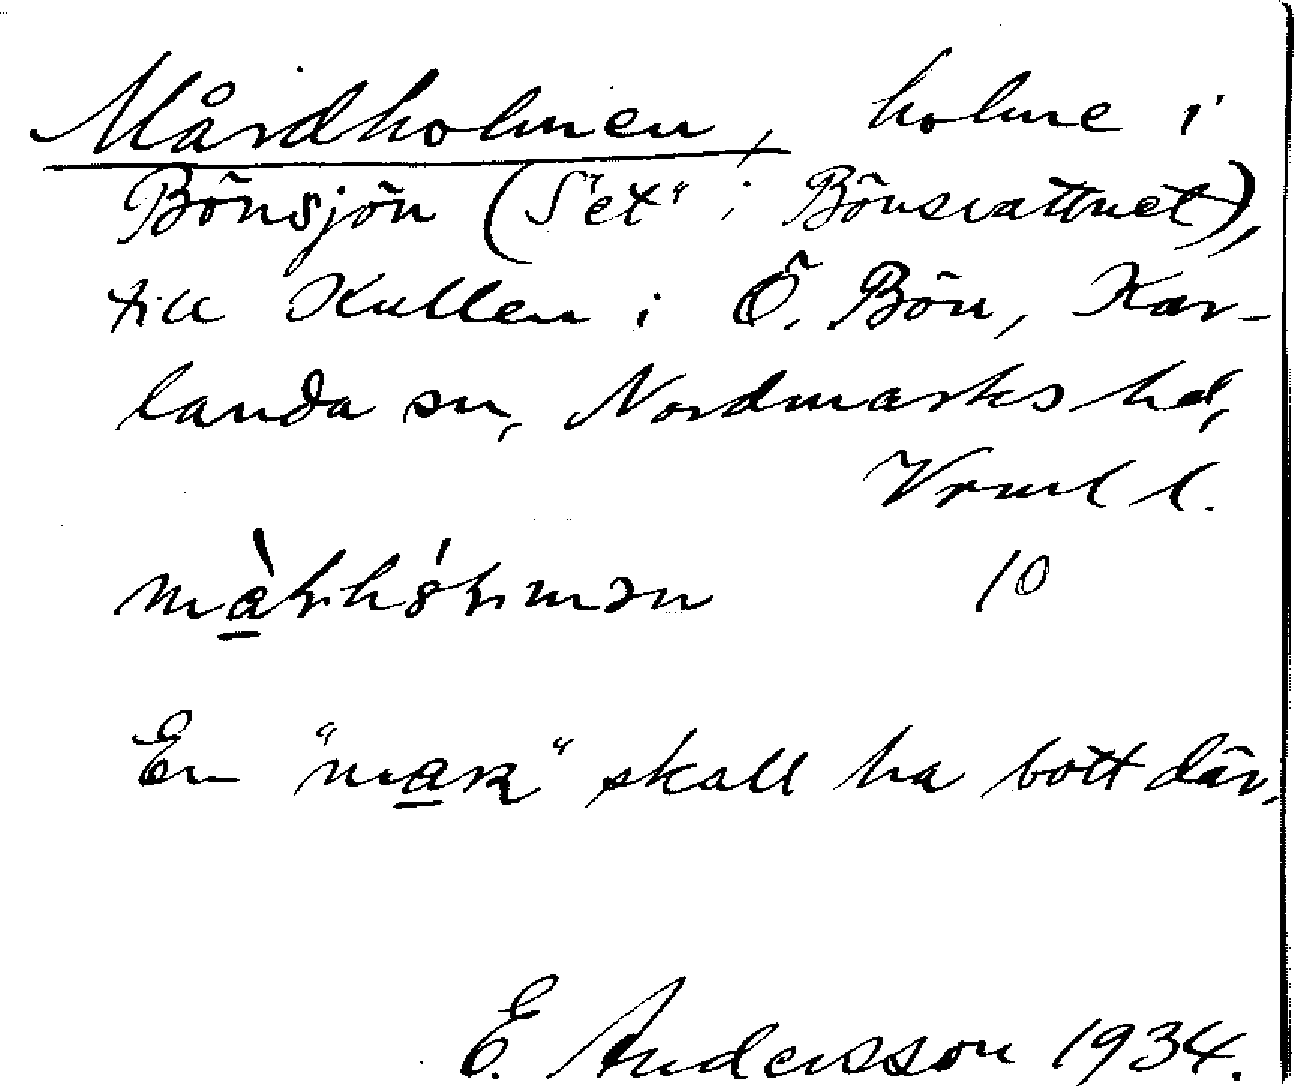 Mårdholmen, holme i
Bönsjön (S"et" i Bönsvattnet),
till Kullen i Ö. Bön, Kar-
landa sn, Nordmarks hd,
Vrml l.
10
En "mar" skall ha bott där.
E. Andersson 1934.